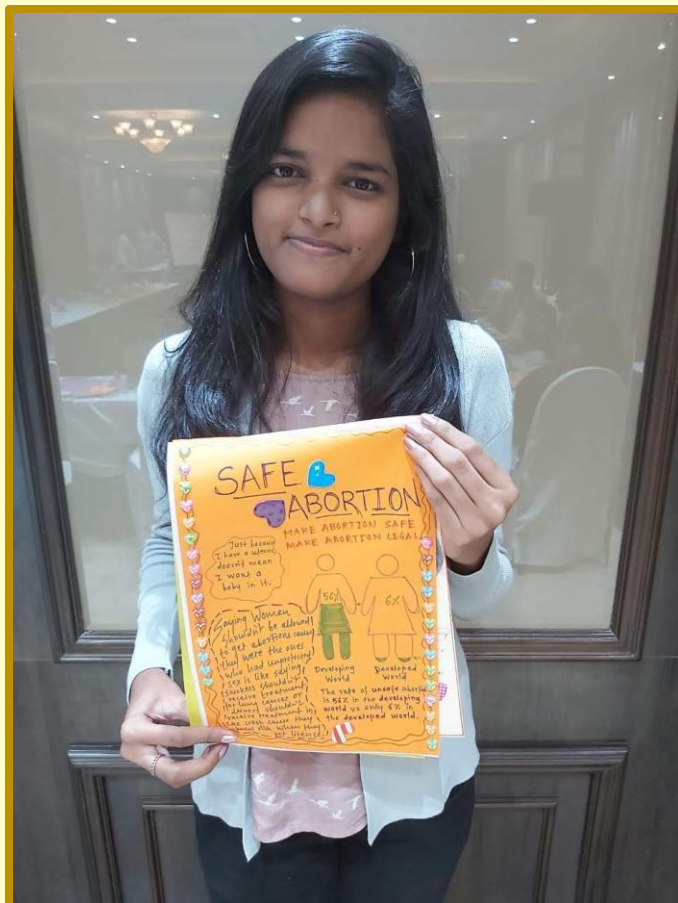 SAFE
ABORTION
MAKE ABORTION SAFE
MAKE ABORTION LEGAL
Just because
I have a uterus,
doesn't mean
I want a
baby in it.
56%
6%
Developing
World
Developed
World
Saying Women
shouldn't be allowed
to get abortions cause
they were the ones
who had unprotected
sex is like saying
smokers shouldn't
receive treatment
for lung cancer or
drivers shouldn't
receive treatment in
crash cause they
when they
get license
The rate of unsafe abortion
is 56% in the developing
world vs only 6% in
the developed world.